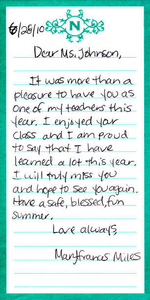 N
6/28/10
Dear Ms. Johnson,
It was more than a
pleasure to have you as
one of my teachers this
year. I enjoyed your
class and I am proud
to say that I have
learned a lot this year.
I will truly miss you
and hope to see you again.
Have a safe, blessed, fun
summer.
Love always,
Maryfrances Miles